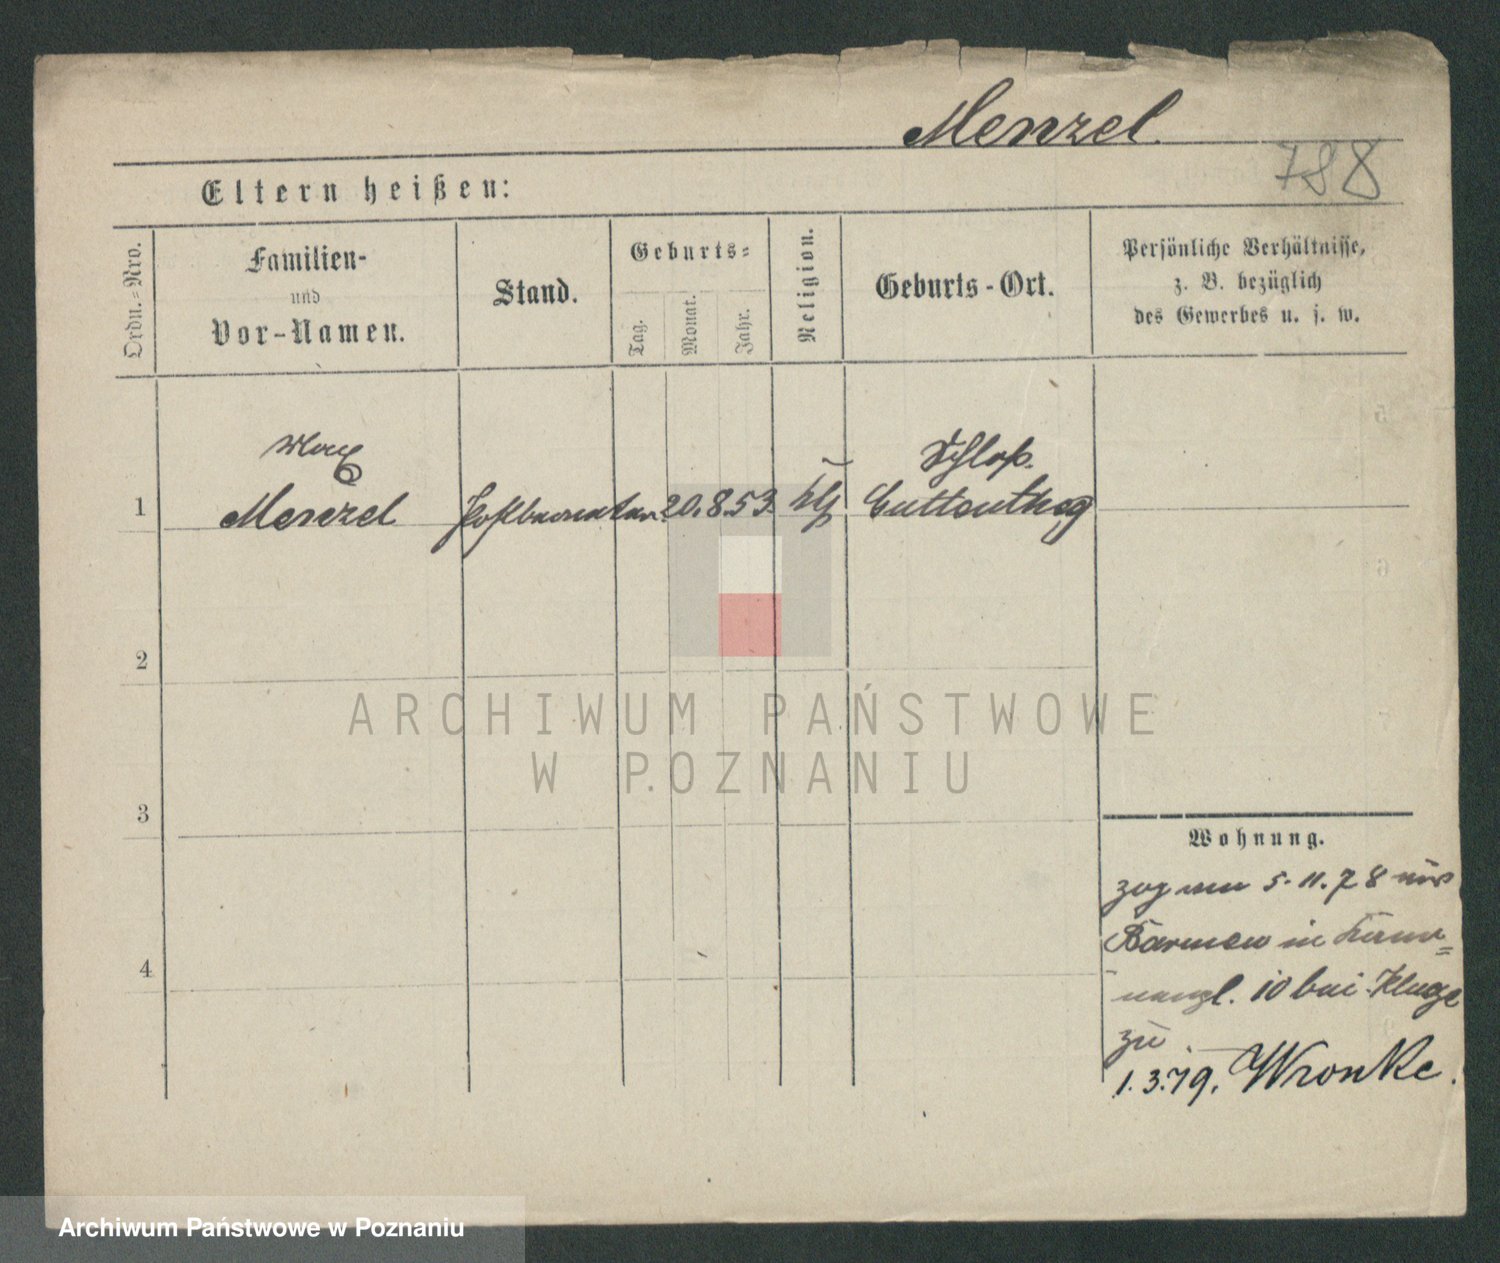 Menzel.
788
Eltern heißen:
Ordn.-Nro.
Familien-
und
Vor-Namen.
Stand.
Geburts-
Tag.
Monat.
Jahr.
Religion.
Geburts-Ort.
Persönliche Verhältnisse,
z. B. bezüglich
des Gewerbes u. s. w.
1
Max
Menzel
20. 8. 53.
Schloß
2
ARCHIWUM PAŃSTWOWE
W POZNANIU
3
Wohnung.
zog am 5. 11. 78 aus
Barmen in
4
10 bei Kluge
zu
1. 3. 79. Wronke.
Archiwum Państwowe w Poznaniu